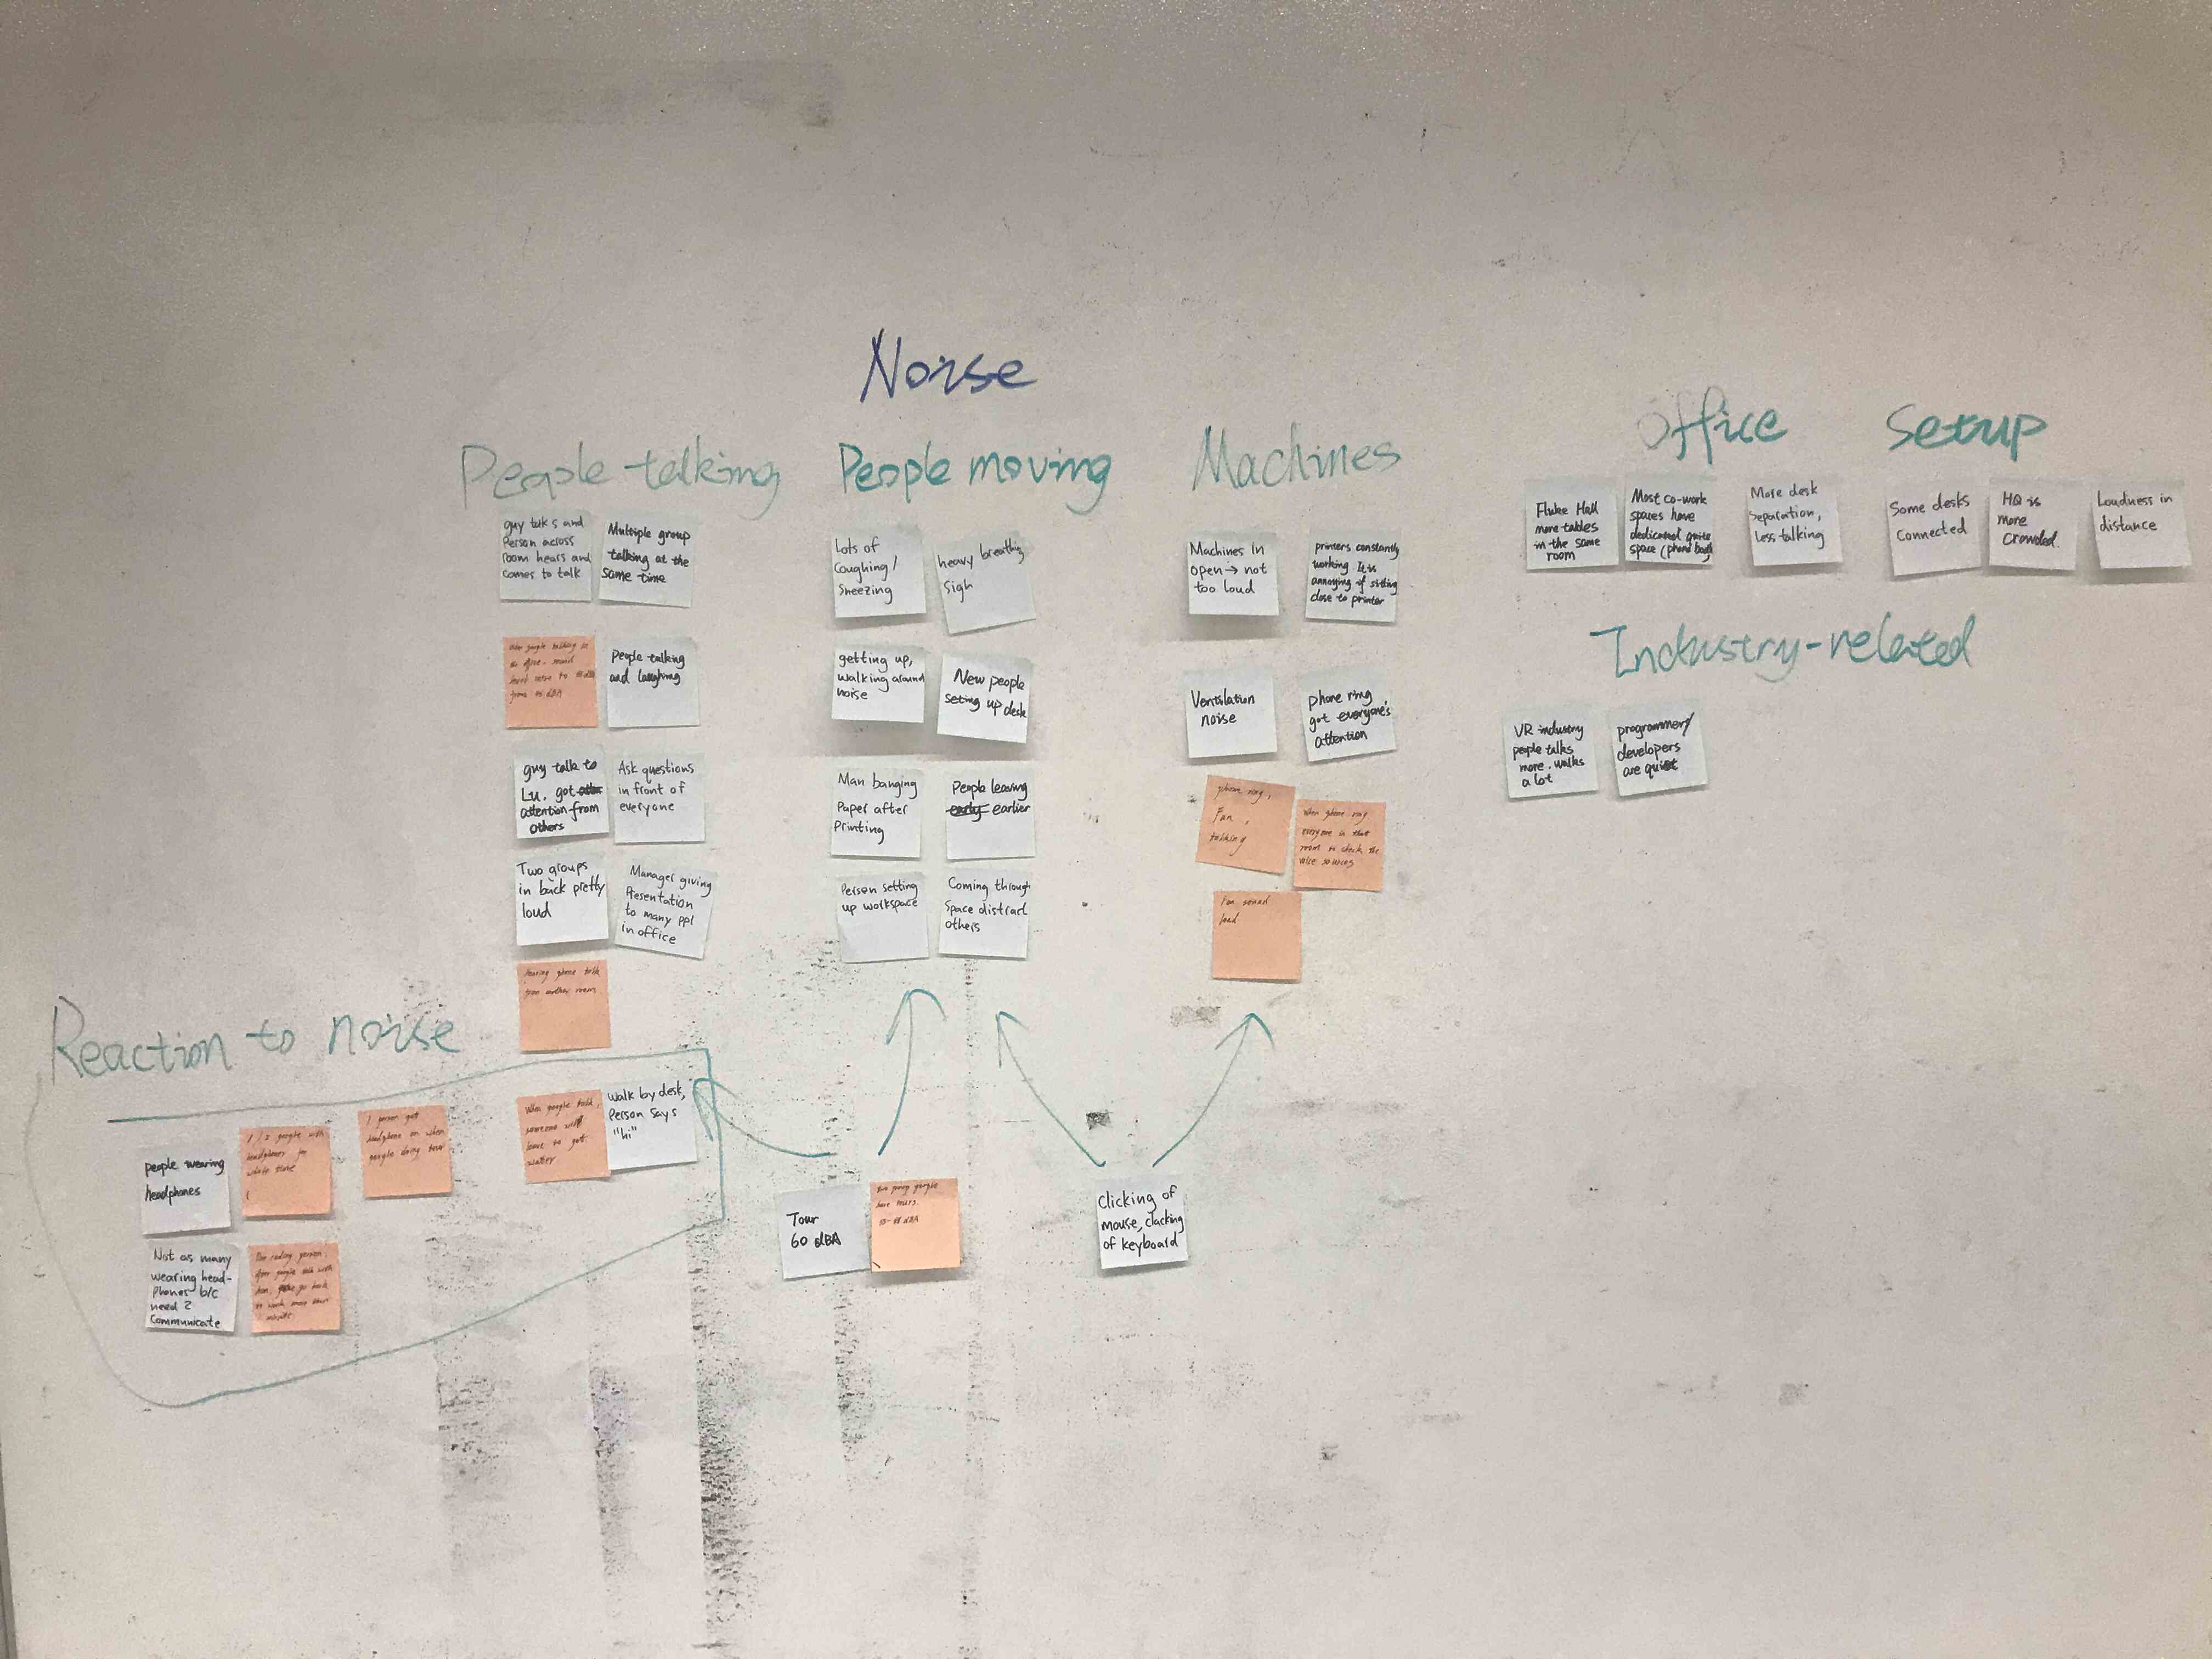 Noise
People talking
guy talks and
Person across
room hears and
comes to talk
Multiple group
talking at the
same time
when people talking in
People talking
and laughing
guy talk to
Lu. got
attention from
others
Ask questions
in front of
everyone
Two groups
in back pretty
loud
Manager giving
Presentation
to many ppl
in office
Hearing phone talk
from another room
People moving
Lots of
Coughing/
Sneezing
heavy breathing
sigh
getting up,
walking around
noise
New people
seting up desk
Man banging
Paper after
Printing
People leaving
early earlier
Person setting
up workspace
Coming through
Space distract
others
Machines
Machines in
open → not
too loud
printers constantly
working. It is
annoying of sitting
close to printer
Ventilation
noise
phone ring
got everyone's
attention
phone ring,
Fan,
talking
When phone ring
everyone in that
room to check the
noise sources
Fan sound
loud
Office Setup
Fluke Hall
more tables
in the same
room
Most co-work
spaces have
dedicated quite
space (phone
More desk
Separation,
less talking
Some desks
connected
HQ is
more
crowded.
Loudness in
distance
Industry-related
VR industry
people talks
more. walks
a lot
programmer/
developers
are quiet
Reaction to noise
people wearing
headphones
1/2 people with
headphones for
whole time
1 person got
headphone on when
people doing tour
When people talk,
someone will
leave to get
water
Walk by desk,
Person says
"hi"
Not as many
wearing head-
phones b/c
need 2
communicate
Tour
60 dBA
people
have tours.
Clicking of
mouse, clacking
of keyboard